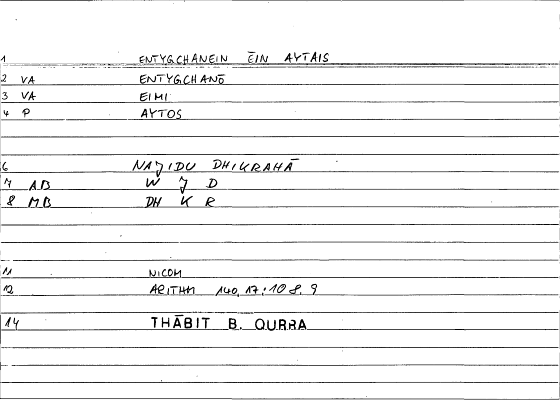 1 ENTYGCHANEIN EIN AYTAIS
2 VA ENTYGCHANŌ
3 VA EIMI
4 P AYTOS
6 NAJIDU DHIKRAHĀ
7 AB W J D
8 MB DH K R
11 NICOM
12 ARITHM 140, 17 : 108, 9
14 THĀBIT B. QURRA